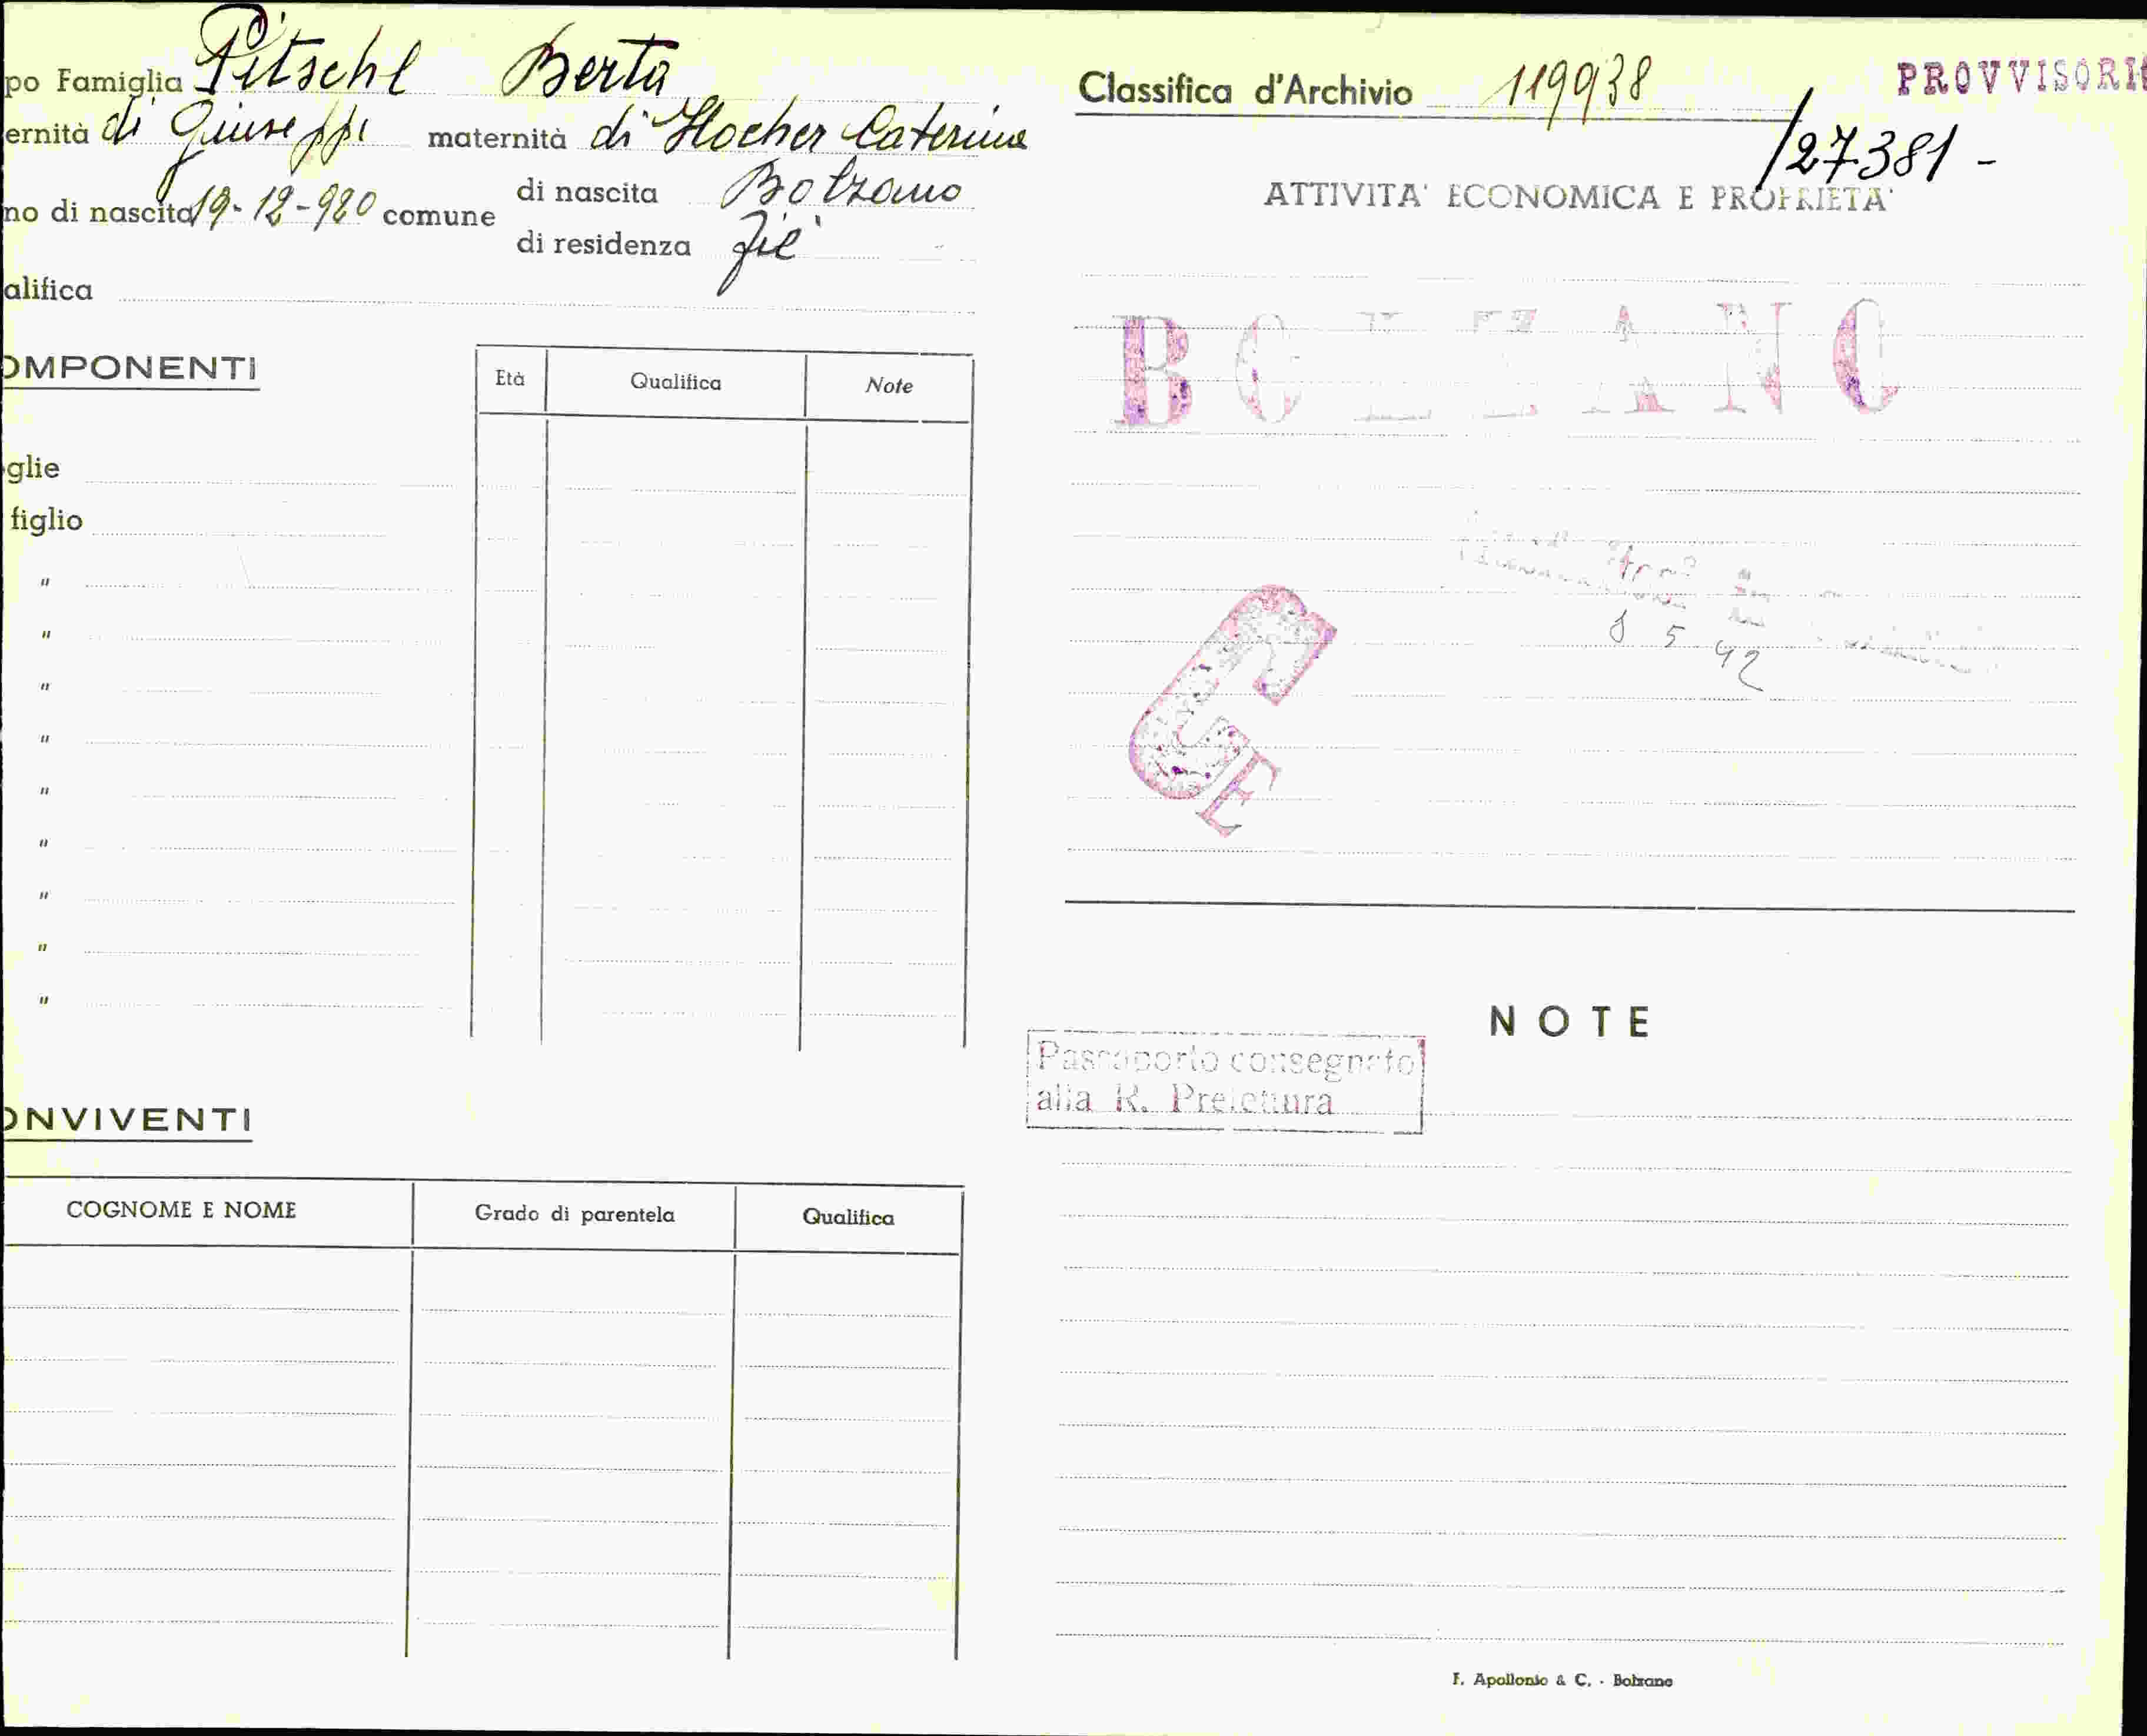 po Famiglia Pitschl Berta
ernità di Giuseppe maternità di Hocher Caterina
no di nascita 19-12-920 comune di nascita Bolzano
di residenza Fiè
alifica
OMPONENTI
Età Qualifica Note
glie
figlio
"
"
"
"
"
"
"
"
"
ONVIVENTI
COGNOME E NOME Grado di parentela Qualifica
Classifica d'Archivio 119938
PROVVISORI
/27381-
ATTIVITA' ECONOMICA E PROPRIETA'
BOLZANO
8 5 42
G
E
NOTE
Passaporto consegnato
alla R. Prefettura
F. Apollonio & C. - Bolzano